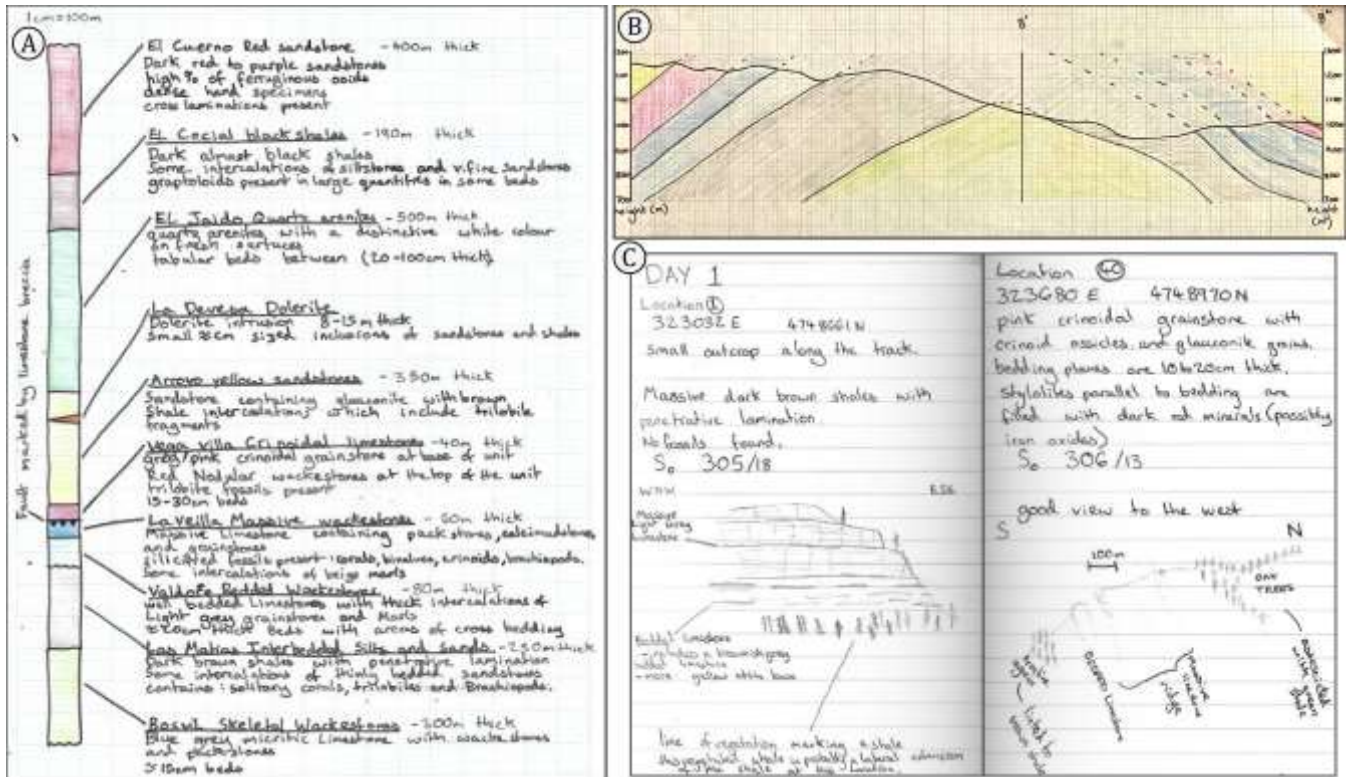 A
1cm=100m
El Cuerno Red sandstone - 400m thick
Dark red to purple sandstones
high % of ferruginous oxids
dense hand specimens
cross laminations present
El Cocial black shales - 190m thick
Dark almost black shales
Some intercalations of siltstones and v. fine sandstones
graptoloids present in large quantities in some beds
El Jaido Quartz arenites - 500m thick
quartz arenites with a distinctive white colour
on fresh surfaces
tabular beds between (20-100cm thick)
La Devesa Dolerite
Dolerite intrusion 8-15m thick
Small ≈cm sized inclusions of sandstones and shales
Arroyo yellow sandstones - 350m thick
Sandstone containing glauconite with brown
Shale intercalations which include trilobite
fragments
Vega villa Crinoidal limestones - 40m thick
grey/pink crinoidal grainstone at base of unit
Red Nodular wackestones at the top of the unit
trilobite fossils present
15-30cm beds
Fault marked by limestone breccia
La Veilla Massive wackestones - 60m thick
Massive Limestone containing packstones, calcimudstones
and grainstones
silicified fossils present: corals, bivalves, crinoids, brachiopods.
Some intercalations of beige marls
Bedded Wackestones - 80m thick
well bedded Limestones with thick intercalations of
Light grey grainstones and Marls
≈20cm thick Beds with areas of cross bedding
Las Matias Interbedded Silts and sands - 250m thick
Dark brown shales with penetrative lamination
Some intercalations of thinly bedded sandstones
contains: solitary corals, trilobites and Brachiopods.
Skeletal Wackestones - 200m thick
Blue grey micritic Limestone with wackestones
and packstones
≈15cm beds
B
B'
B"
height (m)
height (m)
C
DAY 1
Location 1
323032 E 4748661 N
Small outcrop along the track.
Massive dark brown shales with
penetrative lamination.
No fossils found.
S₀ 305/18
WNW ESE
Massive
light grey
limestone
Bedded limestone
- more yellow at the base
line of vegetation marking a shale
of the shale at this location.
Location 40
323680 E 4748970 N
pink crinoidal grainstone with
crinoid ossicles and glauconite grains.
bedding planes are 10 to 20cm thick.
stylolites parallel to bedding are
filled with dark red minerals (possibly
iron oxides)
S₀ 306/13
good view to the west
S N
100m
OAK
TREES
BEDDED limestone
massive
limestone
ridge
associated
with green
shale
linked to
brown shale